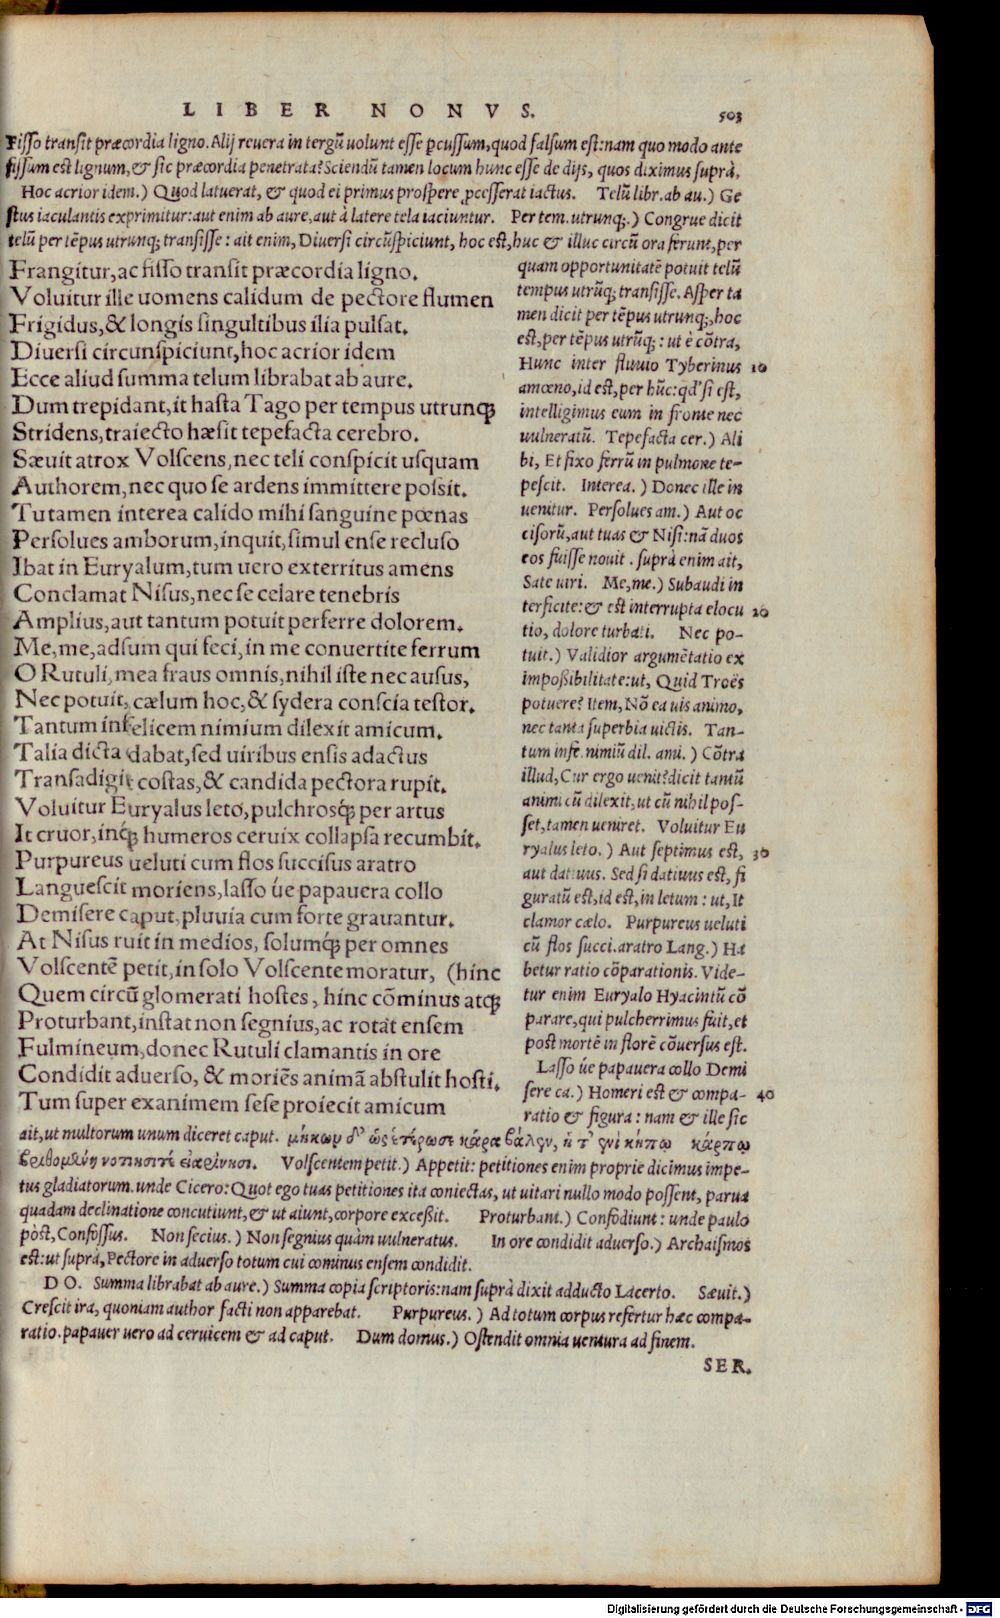 LIBER NONVS. 503
Fisso transit præcordia ligno. Alij reuera in tergū uolunt esse ꝑcussum, quod falsum est: nam quo modo ante
fissum est lignum, & sic præcordia penetrata? Sciendū tamen locum hunc esse de dijs, quos diximus suprà.
Hoc acrior idem.) Quod latuerat, & quod ei primus prospere ꝓcesserat iactus. Telū libr. ab au.) Ge
stus iaculantis exprimitur: aut enim ab aure, aut à latere tela iaciuntur. Per tem. utrunq;.) Congrue dicit
telū per tēpus utrunq; transisse: ait enim, Diuersi circūspiciunt, hoc est, huc & illuc circū ora ferunt, per
Frangitur, ac fisso transit præcordia ligno.
Voluitur ille uomens calidum de pectore flumen
Frigidus, & longis singultibus ilia pulsat.
Diuersi circunspiciunt, hoc acrior idem
Ecce aliud summa telum librabat ab aure.
Dum trepidant, it hasta Tago per tempus utrunq;
Stridens, traiecto hæsit tepefacta cerebro.
Sæuit atrox Volscens, nec teli conspicit usquam
Authorem, nec quo se ardens immittere possit.
Tu tamen interea calido mihi sanguine pœnas
Persolues amborum, inquit, simul ense recluso
Ibat in Euryalum, tum uero exterritus amens
Conclamat Nisus, nec se celare tenebris
Amplius, aut tantum potuit perferre dolorem.
Me, me, adsum qui feci, in me conuertite ferrum
O Rutuli, mea fraus omnis, nihil iste nec ausus,
Nec potuit, cælum hoc, & sydera conscia testor.
Tantum infelicem nimium dilexit amicum.
Talia dicta dabat, sed uiribus ensis adactus
Transadigit costas, & candida pectora rupit.
Voluitur Euryalus leto, pulchrosq́; per artus
It cruor, inq́; humeros ceruix collapsa recumbit.
Purpureus ueluti cum flos succisus aratro
Languescit moriens, lasso úe papauera collo
Demisere caput, pluuia cum forte grauantur.
At Nisus ruit in medios, solumq́; per omnes
Volscentē petit, in solo Volscente moratur, (hinc
Quem circū glomerati hostes, hinc cōminus atq;
Proturbant, instat non segnius, ac rotat ensem
Fulmineum, donec Rutuli clamantis in ore
Condidit aduerso, & moriēs animā abstulit hosti.
Tum super exanimem sese proiecit amicum
quam opportunitatē potuit telū
tempus utrūq; transisse. Asper ta
men dicit per tēpus utrunq;, hoc
est, per tēpus utrūq;: ut è cōtra,
Hunc inter fluuio Tyberinus 10
amœno, id est, per hūc: qd' si est,
intelligimus eum in fronte nec
uulneratū. Tepefacta cer.) Ali
bi, Et fixo ferrū in pulmone te-
pescit. Interea.) Donec ille in
uenitur. Persolues am.) Aut oc
cisorū, aut tuas & Nisi: nā duos
eos fuisse nouit. suprà enim ait,
Sate uiri. Me, me.) Subaudi in
terficite: & est interrupta elocu 20
tio, dolore turbati. Nec po-
tuit.) Validior argumētatio ex
impoßibilitate: ut, Quid Troës
potuere? Item, Nō ea uis animo,
nec tanta superbia uictis. Tan-
tum infe. nimiū dil. ami.) Cōtra
illud, Cur ergo uenit? dicit tantū
animi cū dilexit, ut cū nihil pos-
set, tamen ueniret. Voluitur Eu
ryalus leto.) Aut septimus est, 30
aut datiuus. Sed si datiuus est, fi
guratū est, id est, in letum: ut, It
clamor cælo. Purpureus ueluti
cū flos succi. aratro Lang.) Ha
betur ratio cōparationis. Vide-
tur enim Euryalo Hyacintū cō
parare, qui pulcherrimus fuit, et
post mortē in florē cōuersus est.
Lasso úe papauera collo Demi
sere ca.) Homeri est & compa- 40
ratio & figura: nam & ille sic
ait, ut multorum unum diceret caput. μήκων δ' ὡς ἑτέρωσε κάρα βάλεν, ἥ τ' ἐνὶ κήπῳ κάρπῳ
βριθομένη νοτίῃσί τε εἰαρινῇσι. Volscentem petit.) Appetit: petitiones enim proprie dicimus impe-
tus gladiatorum. unde Cicero: Quot ego tuas petitiones ita coniectas, ut uitari nullo modo possent, parua
quadam declinatione concutiunt, & ut aiunt, corpore exceßit. Proturbant.) Confodiunt: unde paulo
pòst, Confossus. Non secius.) Non segnius quàm uulneratus. In ore condidit aduerso.) Archaismos
est: ut suprà, Pectore in aduerso totum cui cominus ensem condidit.
DO. Summa librabat ab aure.) Summa copia scriptoris: nam suprà dixit adducto Lacerto. Sæuit.)
Crescit ira, quoniam author facti non apparebat. Purpureus.) Ad totum corpus refertur hæc compa-
ratio. papauer uero ad ceruicem & ad caput. Dum domus.) Ostendit omnia uentura ad finem.
SER.
Digitalisierung gefördert durch die Deutsche Forschungsgemeinschaft - DFG